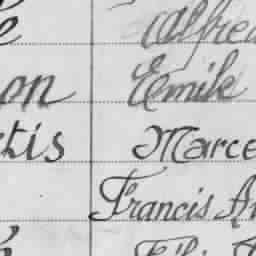 Alfred
on Emile
tis Marce
Francis An